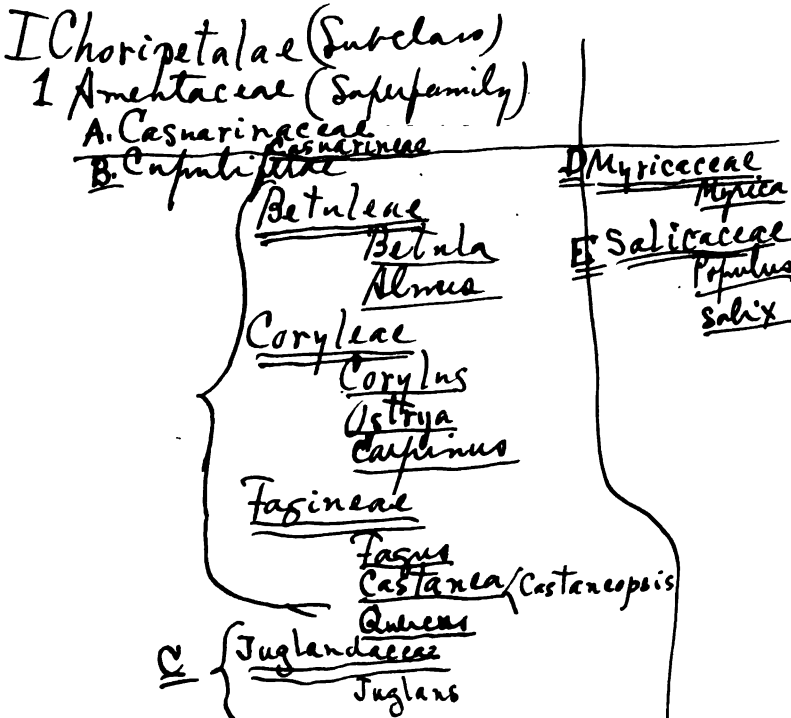 I Choripetalae (Subclass)
1 Amentaceae (Superfamily)
A. Casuarinaceae
Casuarineae
B. Cupuliferae
Betuleae
Betula
Alnus
Coryleae
Corylus
Ostrya
Carpinus
Fagineae
Fagus
Castanea / Castaneopsis
Quercus
C Juglandaceae
Juglans
D Myricaceae
Myrica
E Salicaceae
Populus
Salix